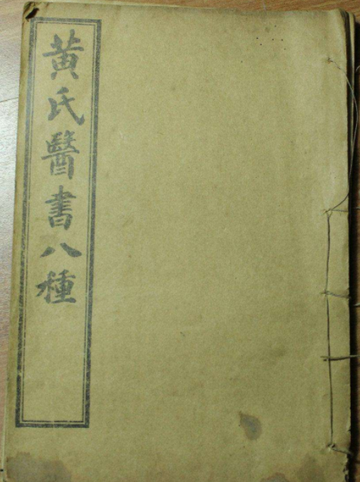 黃氏醫書八種